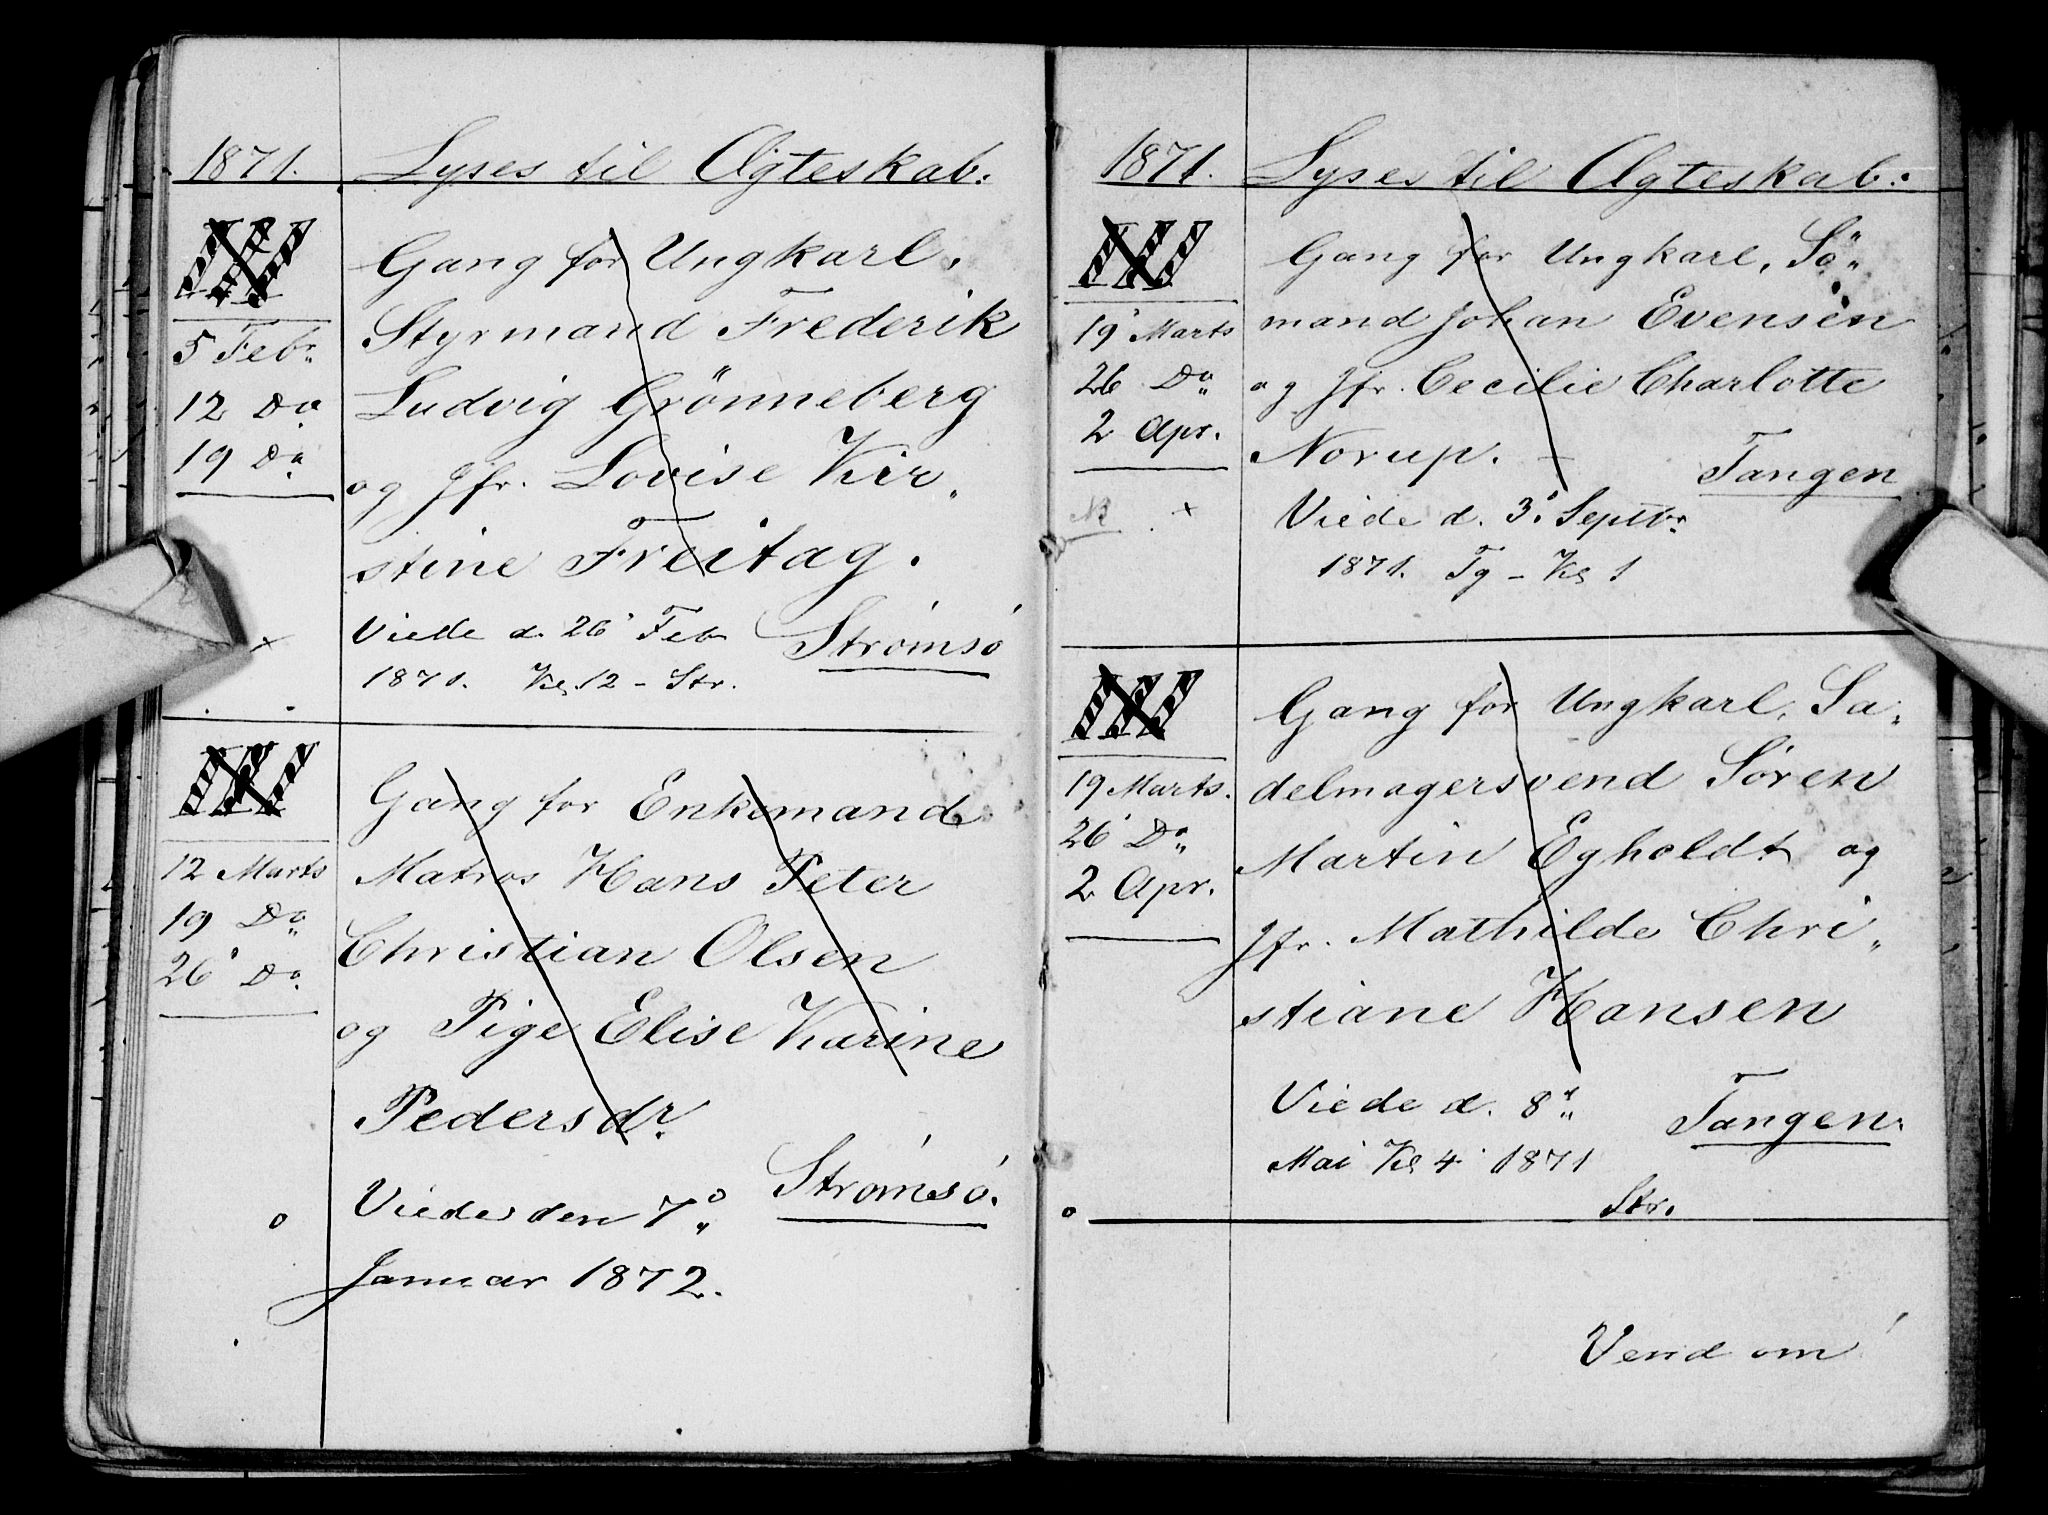 1871. Lyses til Ægteskab:
Gang for Ungkarl,
5 Febr. Styrmand Frederik
12 Do Ludvig Grönneberg
19 Do og Jfr. Lovise Kir„
stine Freitag.
Viede d. 26' Feb Strømsö
1871. Kl. 12 – Str.
Gang for Enkemand
12 Marts Matros Hans Peter
19 Do Christian Olsen
26' Do og Pige Elise Karine
Pedersdr.
Viede den 7de Strømsö.
Januar 1872.
1871. Lyses til Ægteskab:
Gang for Ungkarl, Sö„
19' Marts mand Johan Evensen
26 Do og Jfr. Cecilie Charlotte
2 Apr. Norup. – Tangen
Viede d. 3' Septbr.
1871. Tg – Kl 1
Gang for Ungkarl, Sa„
19 Marts. delmagersvend Sören
26' Do Martin Egholdt og
2 Apr. Jfr. Mathilde Chri„
stiane Hansen
Viede d. 8' Tangen.
Mai Kl 4 1871
Str.
Vend om